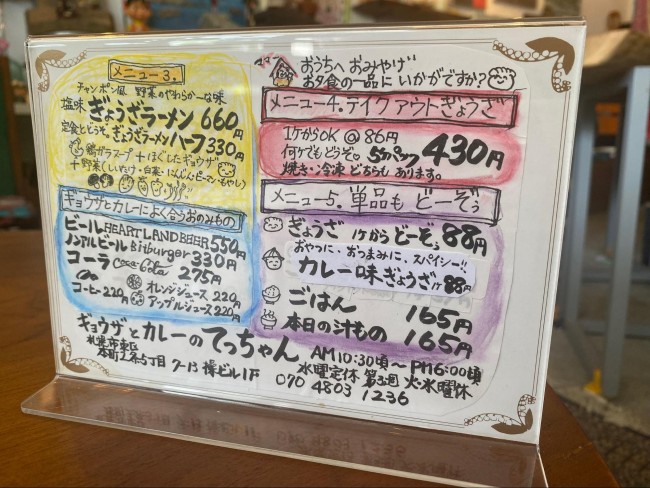 メニュー3.
チャンポン風 野菜のやわらか〜な味
塩味 ぎょうざラーメン 660円
定食とどうぞ。ぎょうざラーメンハーフ 330円
鶏ガラスープ+ほぐしたギョウザ
+野菜(しいたけ・白菜・にんじん・ピーマン・もやし)
ギョウザとカレーによく合うおのみもの
ビール HEARTLAND BEER 550円
ノンアルビール Bitburger 330円
コーラ Coca-Cola 275円
オレンジジュース 220円
コーヒー 220円 アップルジュース 220円
おうちへ おみやげ
お夕食の一品に いかがですか?
メニュー4.テイクアウトぎょうざ
1ケからOK @ 86円
何ケでもどうぞ 5ケパック 430円
焼き・冷凍 どちらも あります。
メニュー5. 単品も どーぞぅ
ぎょうざ 1ケからどーぞぅ 88円
おやつに、おつまみに、スパイシー!!
カレー味ぎょうざ1ケ 88円
ごはん 165円
本日の汁もの 165円
ギョウザとカレーの てっちゃん AM10:30頃〜PM6:00頃
札幌市東区
本町2条5丁目 7-13 操ビル1F
水曜定休 第3週 火・水曜休
070 4803 1236